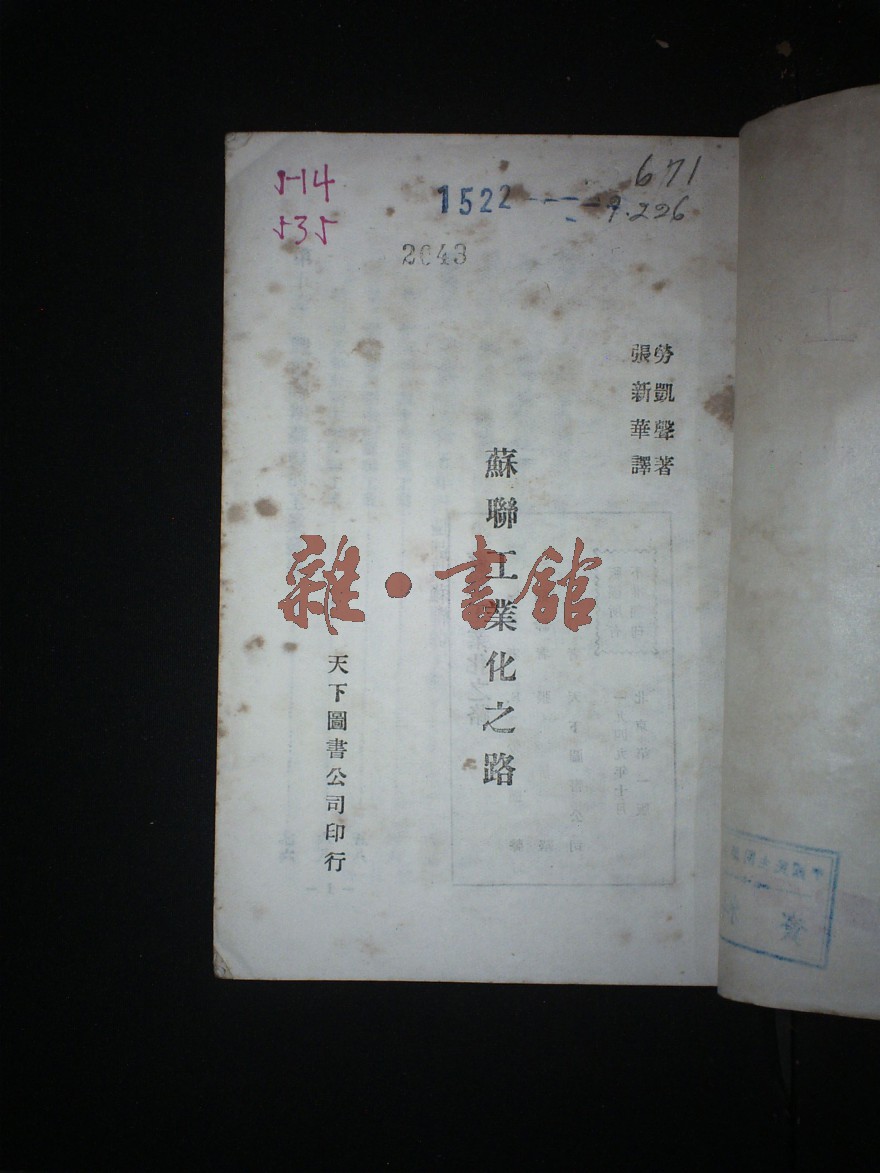 514
535
1522
671
9.226
2643
勞凱聲著
張新華譯
蘇聯工業化之路
雜·書館
天下圖書公司印行